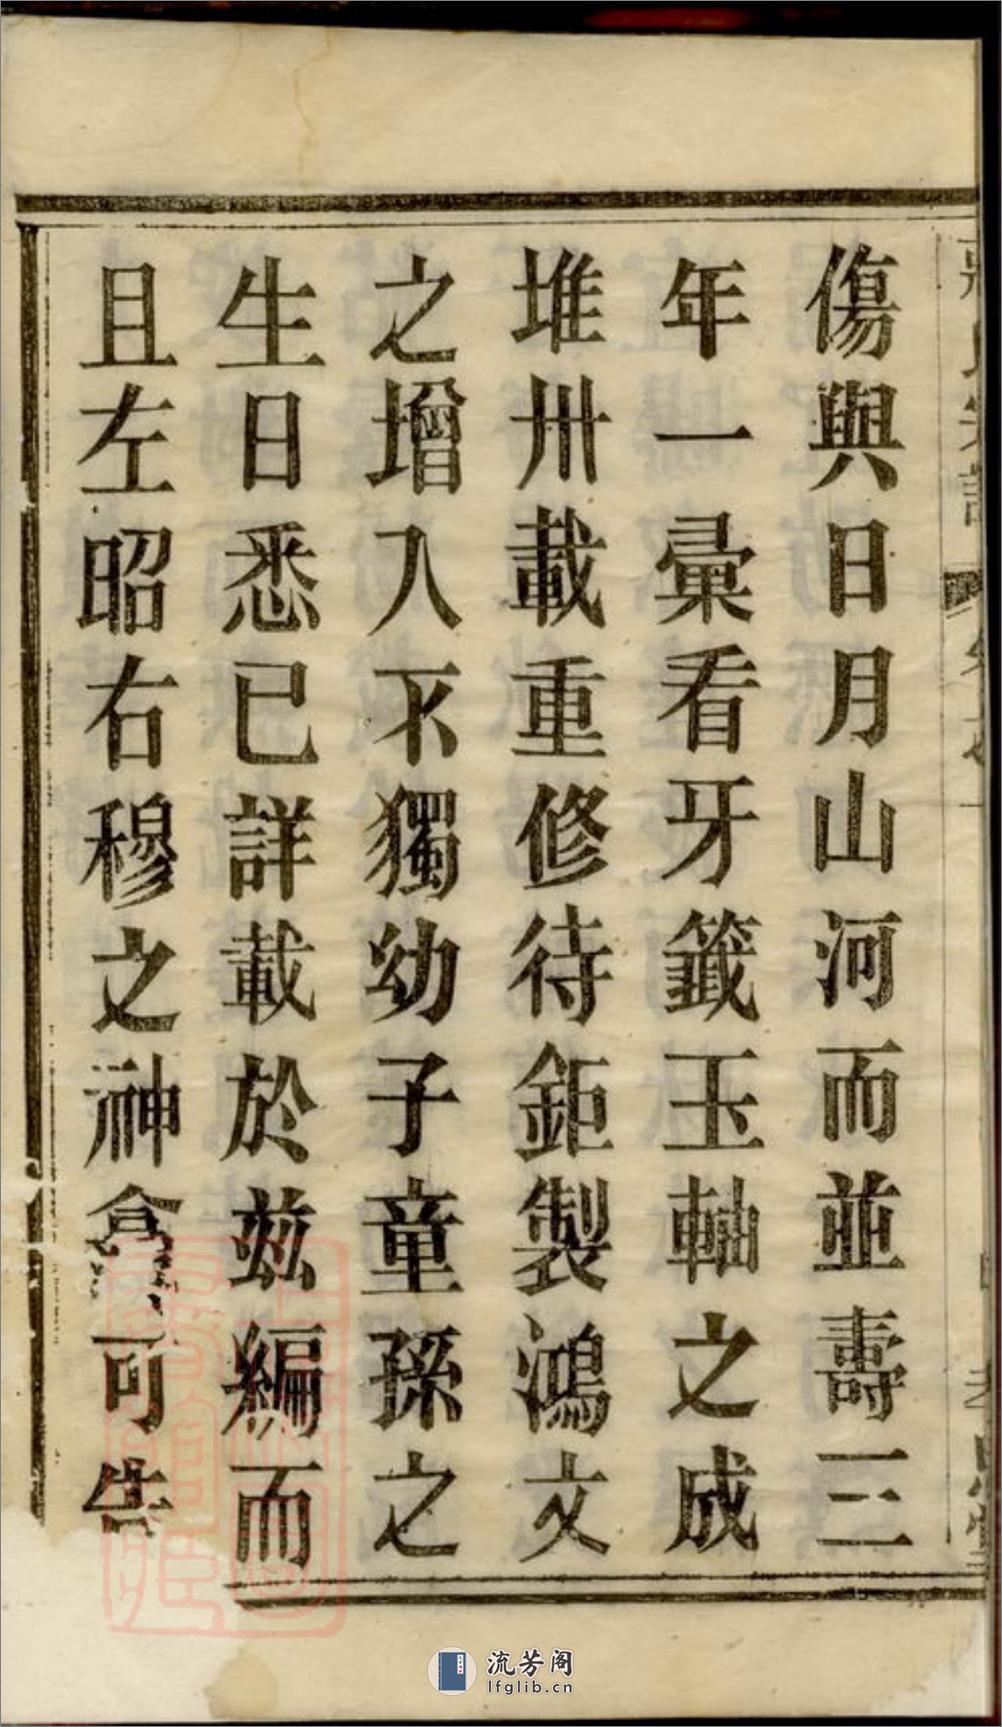 傷與日月山河而並壽三
年一彙看牙籤玉軸之成
堆卅載重修待鉅製鴻文
之增入不獨幼子童孫之
生日悉已詳載於茲編而
且左昭右穆之神龕可告
流芳阁
lfglib.cn